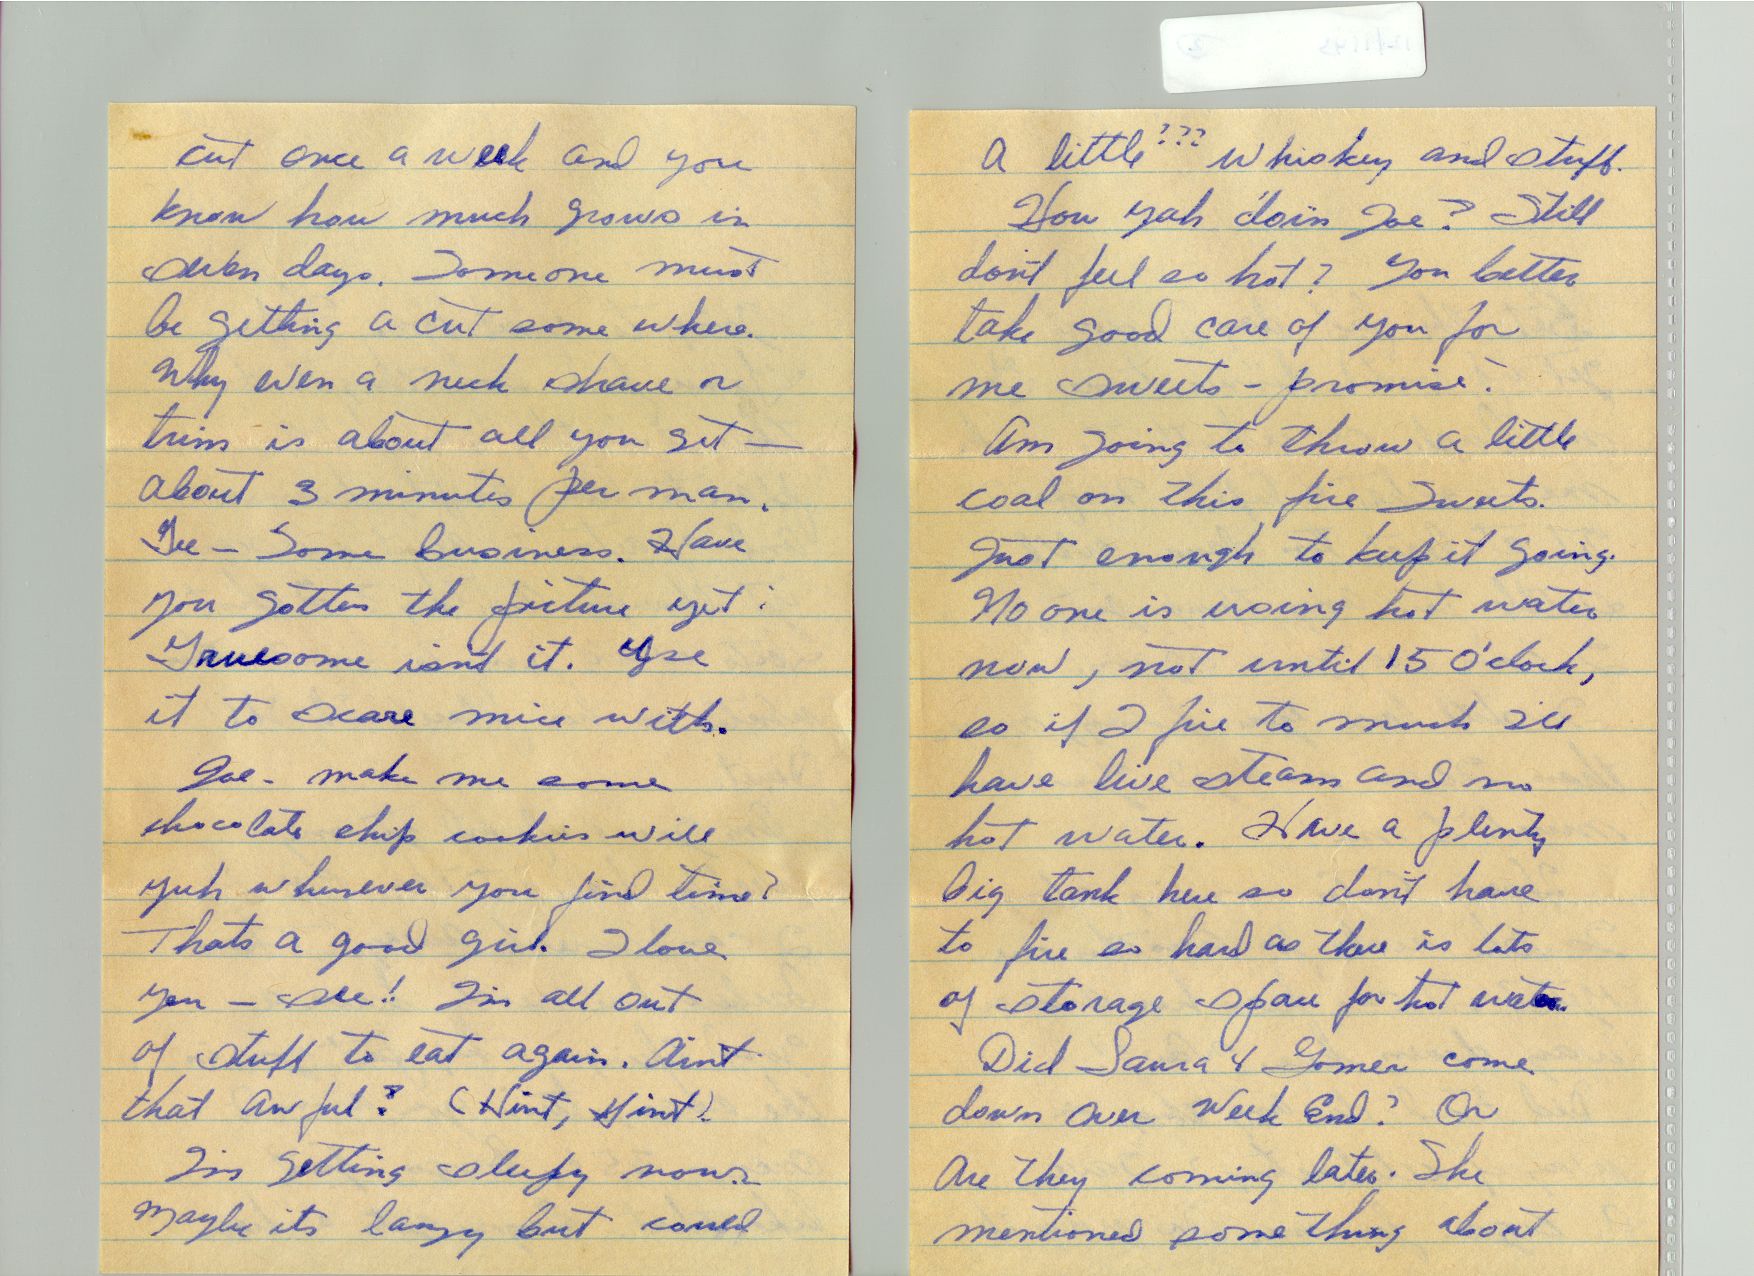 cut once a week and you
know how much grows in
seven days. Someone must
be getting a cut some where.
Why even a neck shave or
trim is about all you get —
about 3 minutes per man.
Gee — Some business. Have
you gotten the picture yet?
Gruesome isn't it. Use
it to scare mice with.
Joe - make me some
chocolate chip cookies will
yuh whenever you find time?
Thats a good girl. I love
you — see!! I'm all out
of stuff to eat again. Ain't
that awful? (Hint, Hint)
I'm getting sleepy now.
Maybe its lazy but could
A little ??? whiskey and stuff.
How yah doin Joe? Still
don't feel so hot? You better
take good care of you for
me sweets - promise?
Am going to throw a little
coal on this fire sweets.
Just enough to keep it going.
No one is using hot water
now, not until 15 O'clock,
so if I fire to much I'll
have live steam and no
hot water. Have a plenty
big tank here so don't have
to fire so hard as there is lots
of storage space for hot water.
Did Laura & Gomer come
down over Week End? Or
Are they coming later. She
mentioned something about